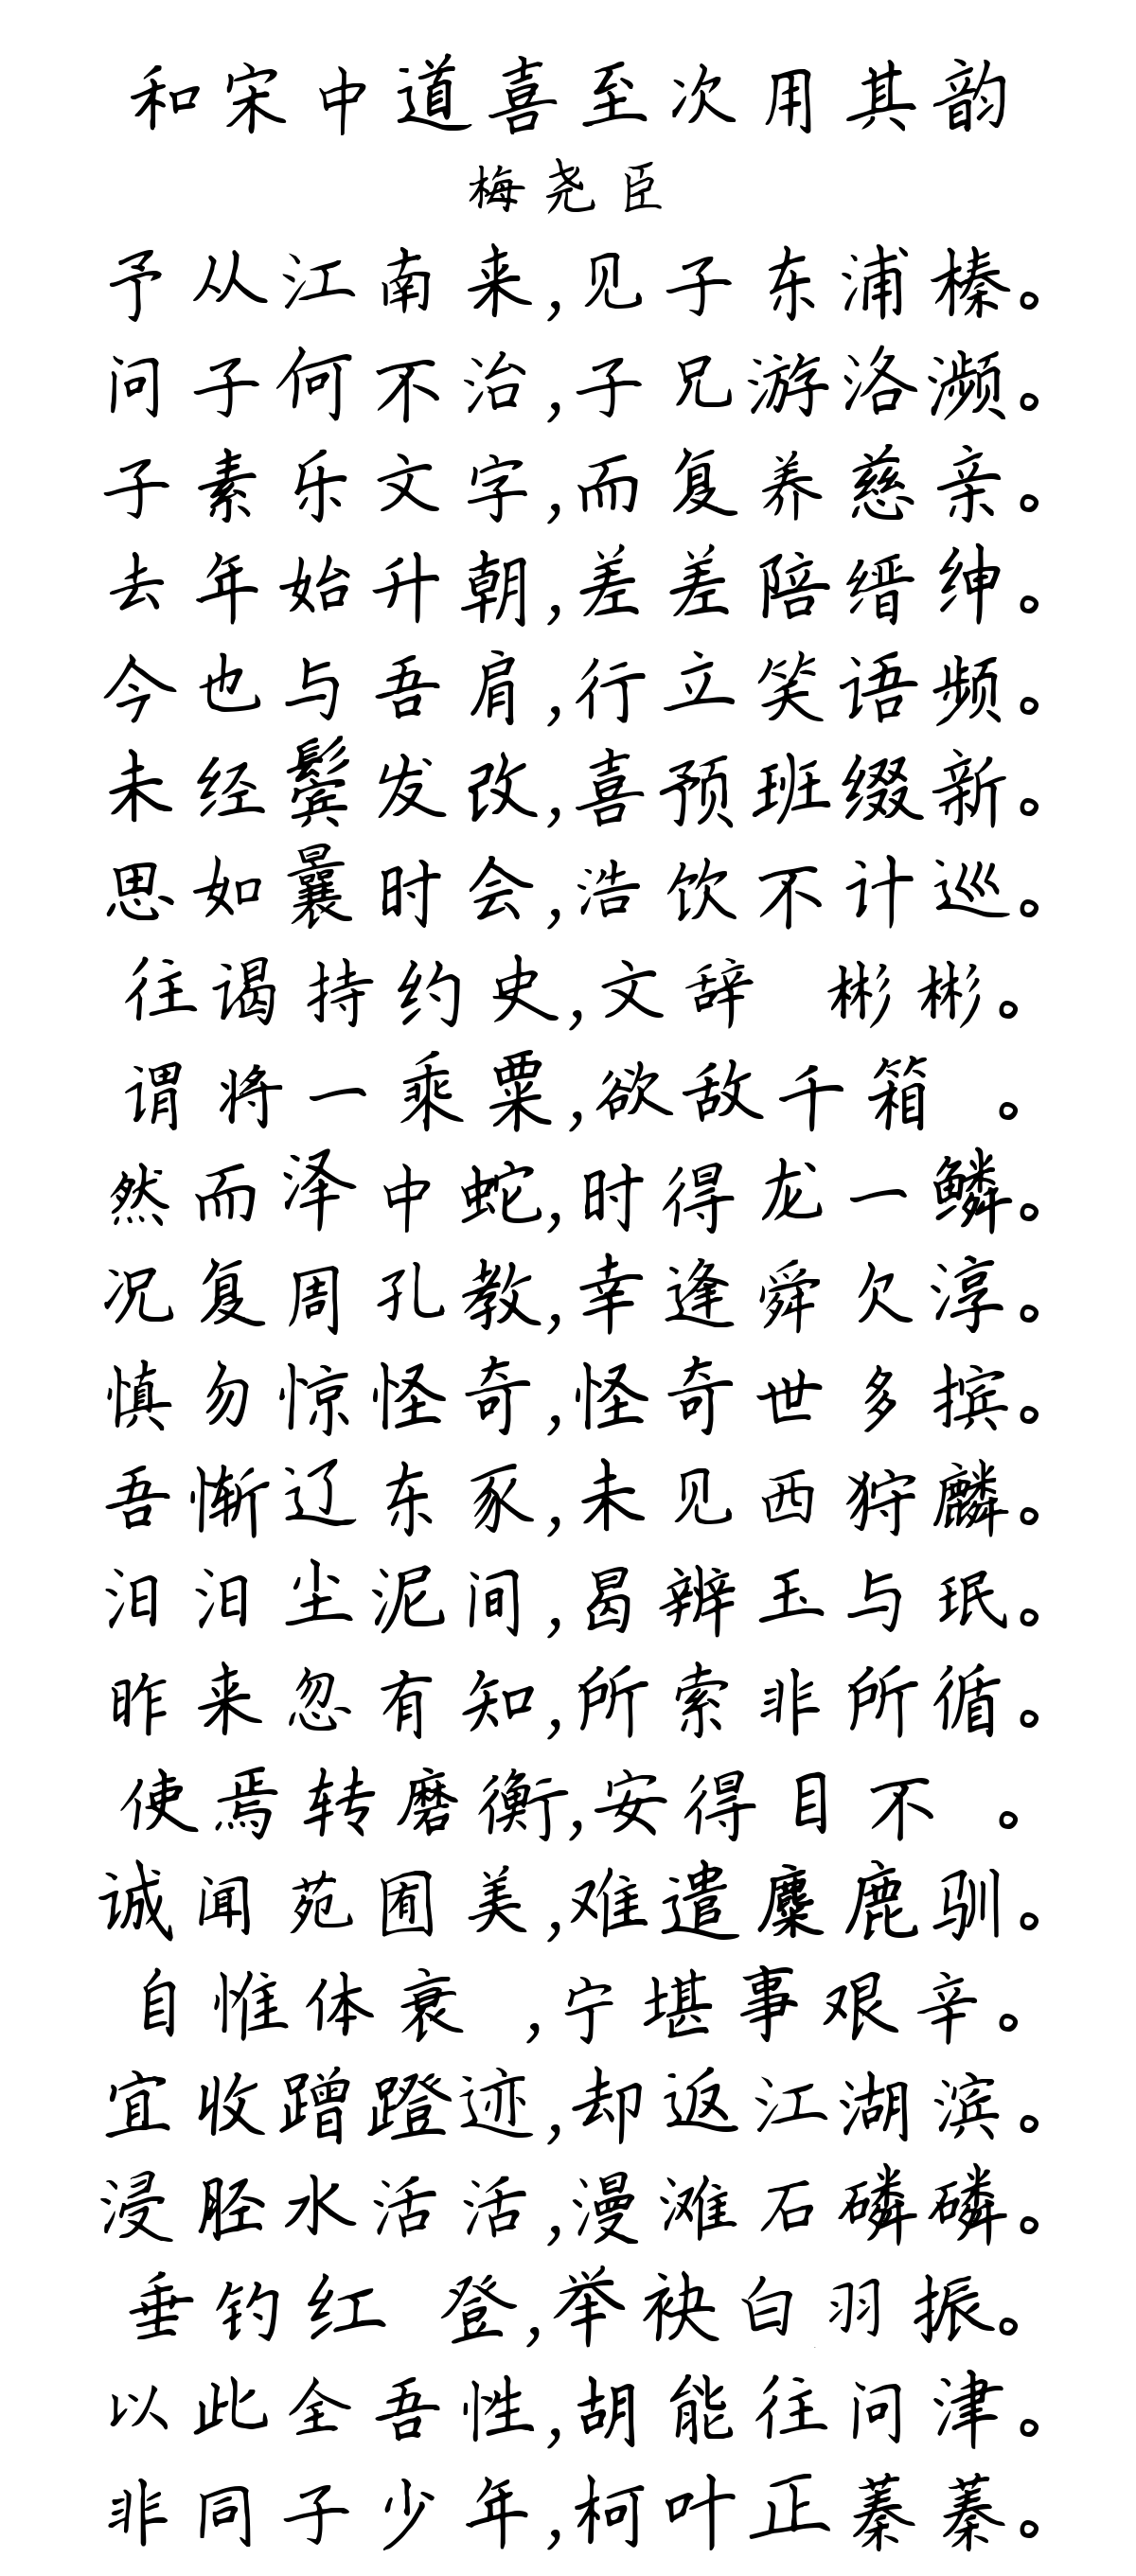 和宋中道喜至次用其韵
梅尧臣
予从江南来,见子东浦榛。
问子何不治,子兄游洛濒。
子素乐文字,而复养慈亲。
去年始升朝,差差陪缙绅。
今也与吾肩,行立笑语频。
未经鬓发改,喜预班缀新。
思如曩时会,浩饮不计巡。
往谒持约史,文辞 彬彬。
谓将一乘粟,欲敌千箱 。
然而泽中蛇,时得龙一鳞。
况复周孔教,幸逢舜欠淳。
慎勿惊怪奇,怪奇世多摈。
吾惭辽东豕,未见西狩麟。
汩汩尘泥间,曷辨玉与珉。
昨来忽有知,所索非所循。
使焉转磨衡,安得目不 。
诚闻苑囿美,难遣麋鹿驯。
自惟体衰 ,宁堪事艰辛。
宜收蹭蹬迹,却返江湖滨。
浸胫水活活,漫滩石磷磷。
垂钓红 登,举袂白羽振。
以此全吾性,胡能往问津。
非同子少年,柯叶正蓁蓁。